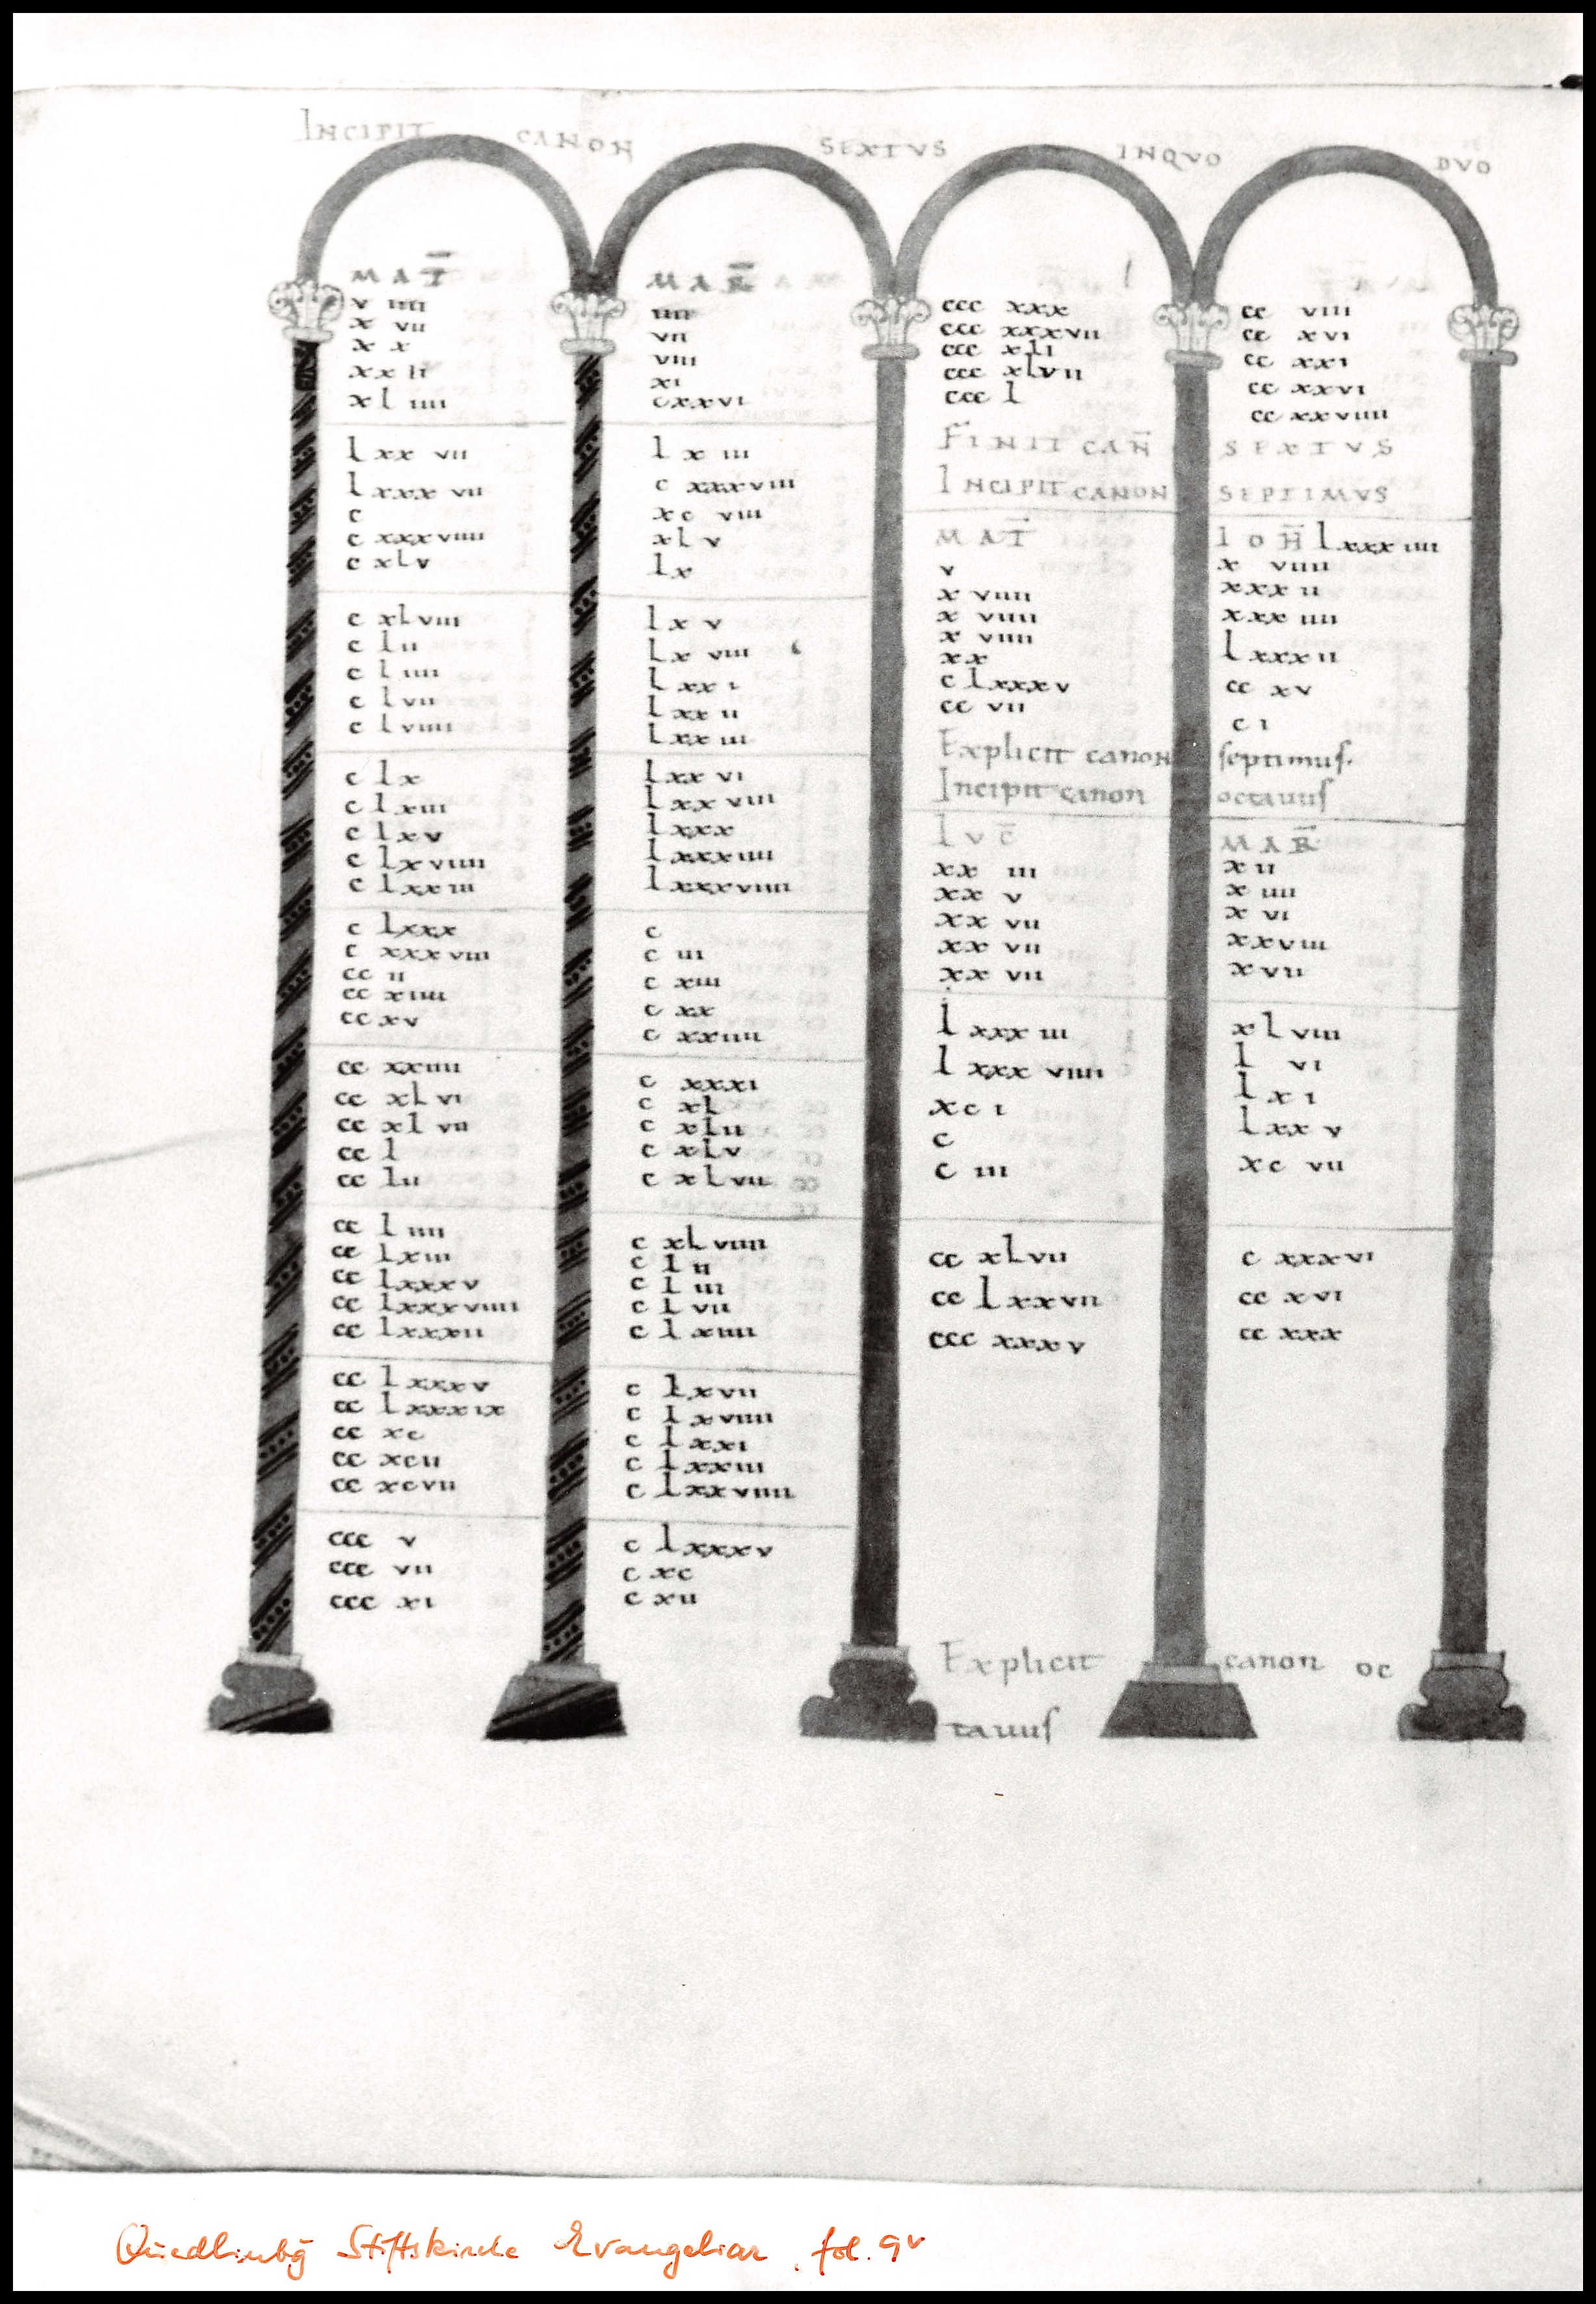 INCIPIT CANON SEXTVS INQVO DVO
MAT̄
v iiii
x vii
x x
xx ii
xl iiii
lxx vii
lxxx vii
c
c xxxviiii
c xlv
c xlviii
c lii
c l iiii
c l vii
c l viiii
c l x
c l xiii
c l xv
c lxviiii
c lxxiii
c lxxx
c xxxviii
cc ii
cc xiiii
cc xv
cc xxiiii
cc xl vi
cc xl vii
cc l
cc lii
cc l iiii
cc lxiii
cc lxxxv
cc lxxxviiii
cc lxxxii
cc lxxxv
cc lxxxix
cc xc
cc xcii
cc xcvii
ccc v
ccc vii
ccc xi
MAR̄
iiii
vii
viii
xi
cxxvi
l x iii
c xxxviii
xc viii
xl v
lx
l x v
lx viii
l xx i
l xx ii
l xx iii
lxx vi
lxx viii
lxxx
lxxxiiii
lxxxviiii
c
c iii
c xiii
c xx
c xxiiii
c xxxi
c xl
c xlii
c xlv
c xlvii
c xlviiii
c l ii
c l iii
c l vii
c l xiiii
c lxvii
c lxviiii
c lxxi
c lxxiii
c lxxviiii
c lxxxv
c xc
c xii
ccc xxx
ccc xxxvii
ccc xli
ccc xlvii
ccc l
cc viii
cc xvi
cc xxi
cc xxvi
cc xxviiii
FINIT CAN̄ SEXTVS
INCIPIT CANON SEPTIMVS
MAT̄
v
x viiii
x viiii
x viiii
xx
c lxxxv
cc vii
IOH̄ lxxxiiii
x viiii
xxx ii
xxx iiii
lxxxii
cc xv
c i
Explicit canon septimus.
Incipit canon octauus
LVC̄
xx iii
xx v
xx vii
xx vii
xx vii
l xxx iii
l xxx viiii
xc i
c
c iii
cc xlvii
cc lxxvii
ccc xxxv
MAR̄
x ii
x iiii
x vi
xxviii
xvii
xl viii
l vi
l x i
lxx v
xc vii
c xxxvi
cc xvi
cc xxx
Explicit canon oc
tauus
Quedlinbg̃ Stiftskirche Evangeliar, fol. 9v